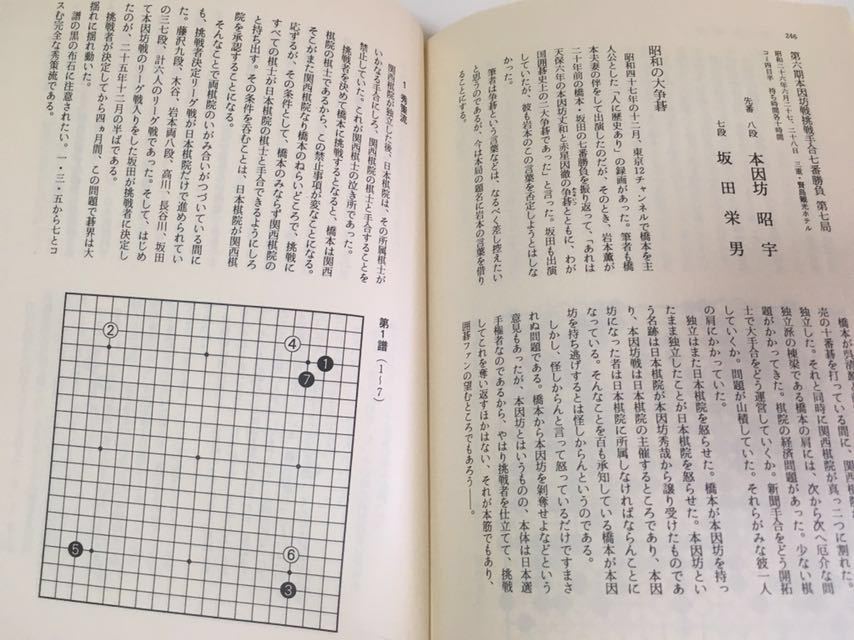 246
第六期本因坊戦挑戦手合七番勝負 第七局
昭和二十六年六月二十七、二十八日 三重・賢島観光ホテル
コミ四目半 持ち時間各十時間
先番 八段 本因坊 昭宇
七段 坂田栄男
昭和の大争碁
昭和四十七年の十二月、東京12チャンネルで橋本を主
人公とした「人に歴史あり」の録画があった。筆者も橋
本夫妻の伴をして出演したのだが、そのとき、岩本薫が
二十年前の橋本・坂田の七番勝負を振り返って、「あれは
天保六年の本因坊丈和と赤星因徹の争碁とともに、わが
国囲碁史上の二大争碁であった」と言った。坂田も出演
していたが、彼も岩本のこの言葉を否定しようとはしな
かった。
筆者は争碁という言葉などは、なるべく差し控えたい
と思うのであるが、今は本局の題名に岩本の言葉を借り
橋本が呉清源
売の十番碁を打っている間に、関西棋院
独立した。それと同時に関西棋院が真っ二つに割れた。
独立派の棟梁である橋本の肩には、次から次へ厄介な問
題がかかってきた。棋院の経済問題があった。少ない棋
士で大手合をどう運営していくか。新聞手合をどう開拓
していくか。問題が山積していた。それらがみな彼一人
の肩にかかっていた。
独立はまた日本棋院を怒らせた。橋本が本因坊を持っ
たまま独立したことが日本棋院を怒らせた。本因坊とい
う名跡は日本棋院が本因坊秀哉から譲り受けたものであ
り、本因坊戦は日本棋院の主催するところであり、本因
坊になった者は日本棋院に所属しなければならんことに
なっている。そんなことを百も承知している橋本が本因
坊を持ち逃げするとは怪しからんというのである。
しかし、怪しからんと言って怒っているだけですまさ
れぬ問題である。橋本から本因坊を剝奪せよなどという
意見もあったが、本因坊とはいうものの、本体は日本選
手権者なのであるから、やはり挑戦者を仕立てて、挑戦
してこれを奪い返すほかはない、それが本筋でもあり、
囲碁ファンの望むところでもあろう――。
1 秀策流
関西棋院が独立した後、日本棋院は、その所属棋士が
いかなる手合にしろ、関西棋院の棋士と手合することを
禁止していた。これが関西棋院の泣き所であった。
挑戦者を決めて橋本に挑戦するとなると、橋本は関西
棋院の棋士であるから、この禁止事項が変なことになる。
そこがまた関西棋院なり橋本のねらいどころで、挑戦に
応ずるが、その条件として、橋本のみならず関西棋院の
すべての棋士が日本棋院の棋士と手合できるようにしろ
と持ち出す。その条件を吞むことは、日本棋院が関西棋
院を承認することになる。
そんなことで両棋院のいがみ合いがつづいている間に
も、挑戦者決定リーグ戦が日本棋院だけで進められてい
た。藤沢九段、木谷、岩本両八段、高川、長谷川、坂田
の三七段、計六人のリーグ戦であった。そして、はじめ
て本因坊戦のリーグ戦入りをした坂田が挑戦者に決定し
たのが、二十五年十二月の半ばである。
挑戦者が決定してから四ヵ月間、この問題で碁界は大
揺れに揺れ動いた。
譜の黒の布石に注意されたい。一・三・五から七とコ
スむ完全な秀策流である。
第1譜(1〜7)
②
④
❶
❼
❺
⑥
❸